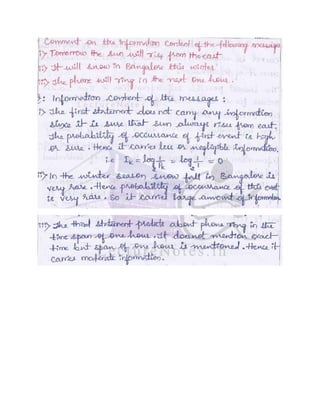 Comment on the Information Content of the following message
i) Tomorrow the sun will rise from the east
ii) It will snow in Bangalore this winter
iii) The phone will ring in the next one hour.
: Information content of the messages :
i) The first statement does not carry any information
since it is sure that sun always rises from east.
The probability of occurance of first event is high
or sure. Hence it carries less or negligible information.
i.e IK = log 1/PK = log 1/1 = 0
ii) In the winter season snow fall in Bangalore is
very rare. Hence probability of occurance of this event
is very rare, so it carries large amount of Information
iii) The third statement predicts about phone ring in the
time span of one hour. It does not mention exact
time but span of one hour is mentioned. Hence it
carries moderate information.